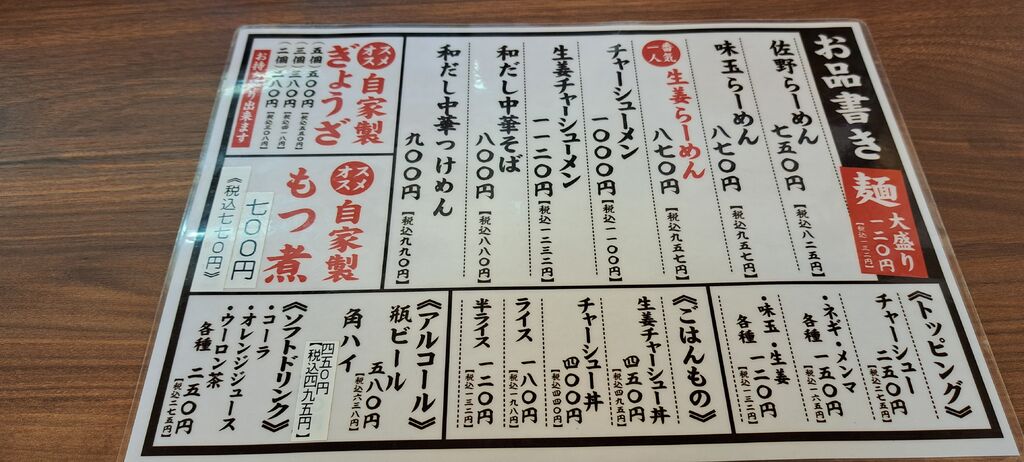 お品書き
麺
大盛り
一二〇円
【税込一三二円】
佐野らーめん
七五〇円
【税込八二五円】
味玉らーめん
八七〇円
【税込九五七円】
一番人気
生姜らーめん
八七〇円
【税込九五七円】
チャーシューメン
一〇〇〇円
【税込一一〇〇円】
生姜チャーシューメン
一一二〇円
【税込一二三二円】
和だし中華そば
八〇〇円
【税込八八〇円】
和だし中華つけめん
九〇〇円
【税込九九〇円】
オススメ
自家製
ぎょうざ
(五個)五〇〇円【税込五五〇円】
(三個)三八〇円【税込四一八円】
(二個)二八〇円【税込三〇八円】
お持ち帰り出来ます
オススメ
自家製
もつ煮
七〇〇円
《税込七七〇円》
《トッピング》
チャーシュー
二五〇円
【税込二七五円】
・ネギ・メンマ
各種 一五〇円
【税込一六五円】
・味玉・生姜
各種 一二〇円
【税込一三二円】
《ごはんもの》
生姜チャーシュー丼
四五〇円
【税込四九五円】
チャーシュー丼
四〇〇円
【税込四四〇円】
ライス 一八〇円
【税込一九八円】
半ライス 一二〇円
【税込一三二円】
《アルコール》
瓶ビール
五八〇円
【税込六三八円】
角ハイ
四五〇円
【税込四九五円】
《ソフトドリンク》
・コーラ
・オレンジジュース
・ウーロン茶
各種 二五〇円
【税込二七五円】